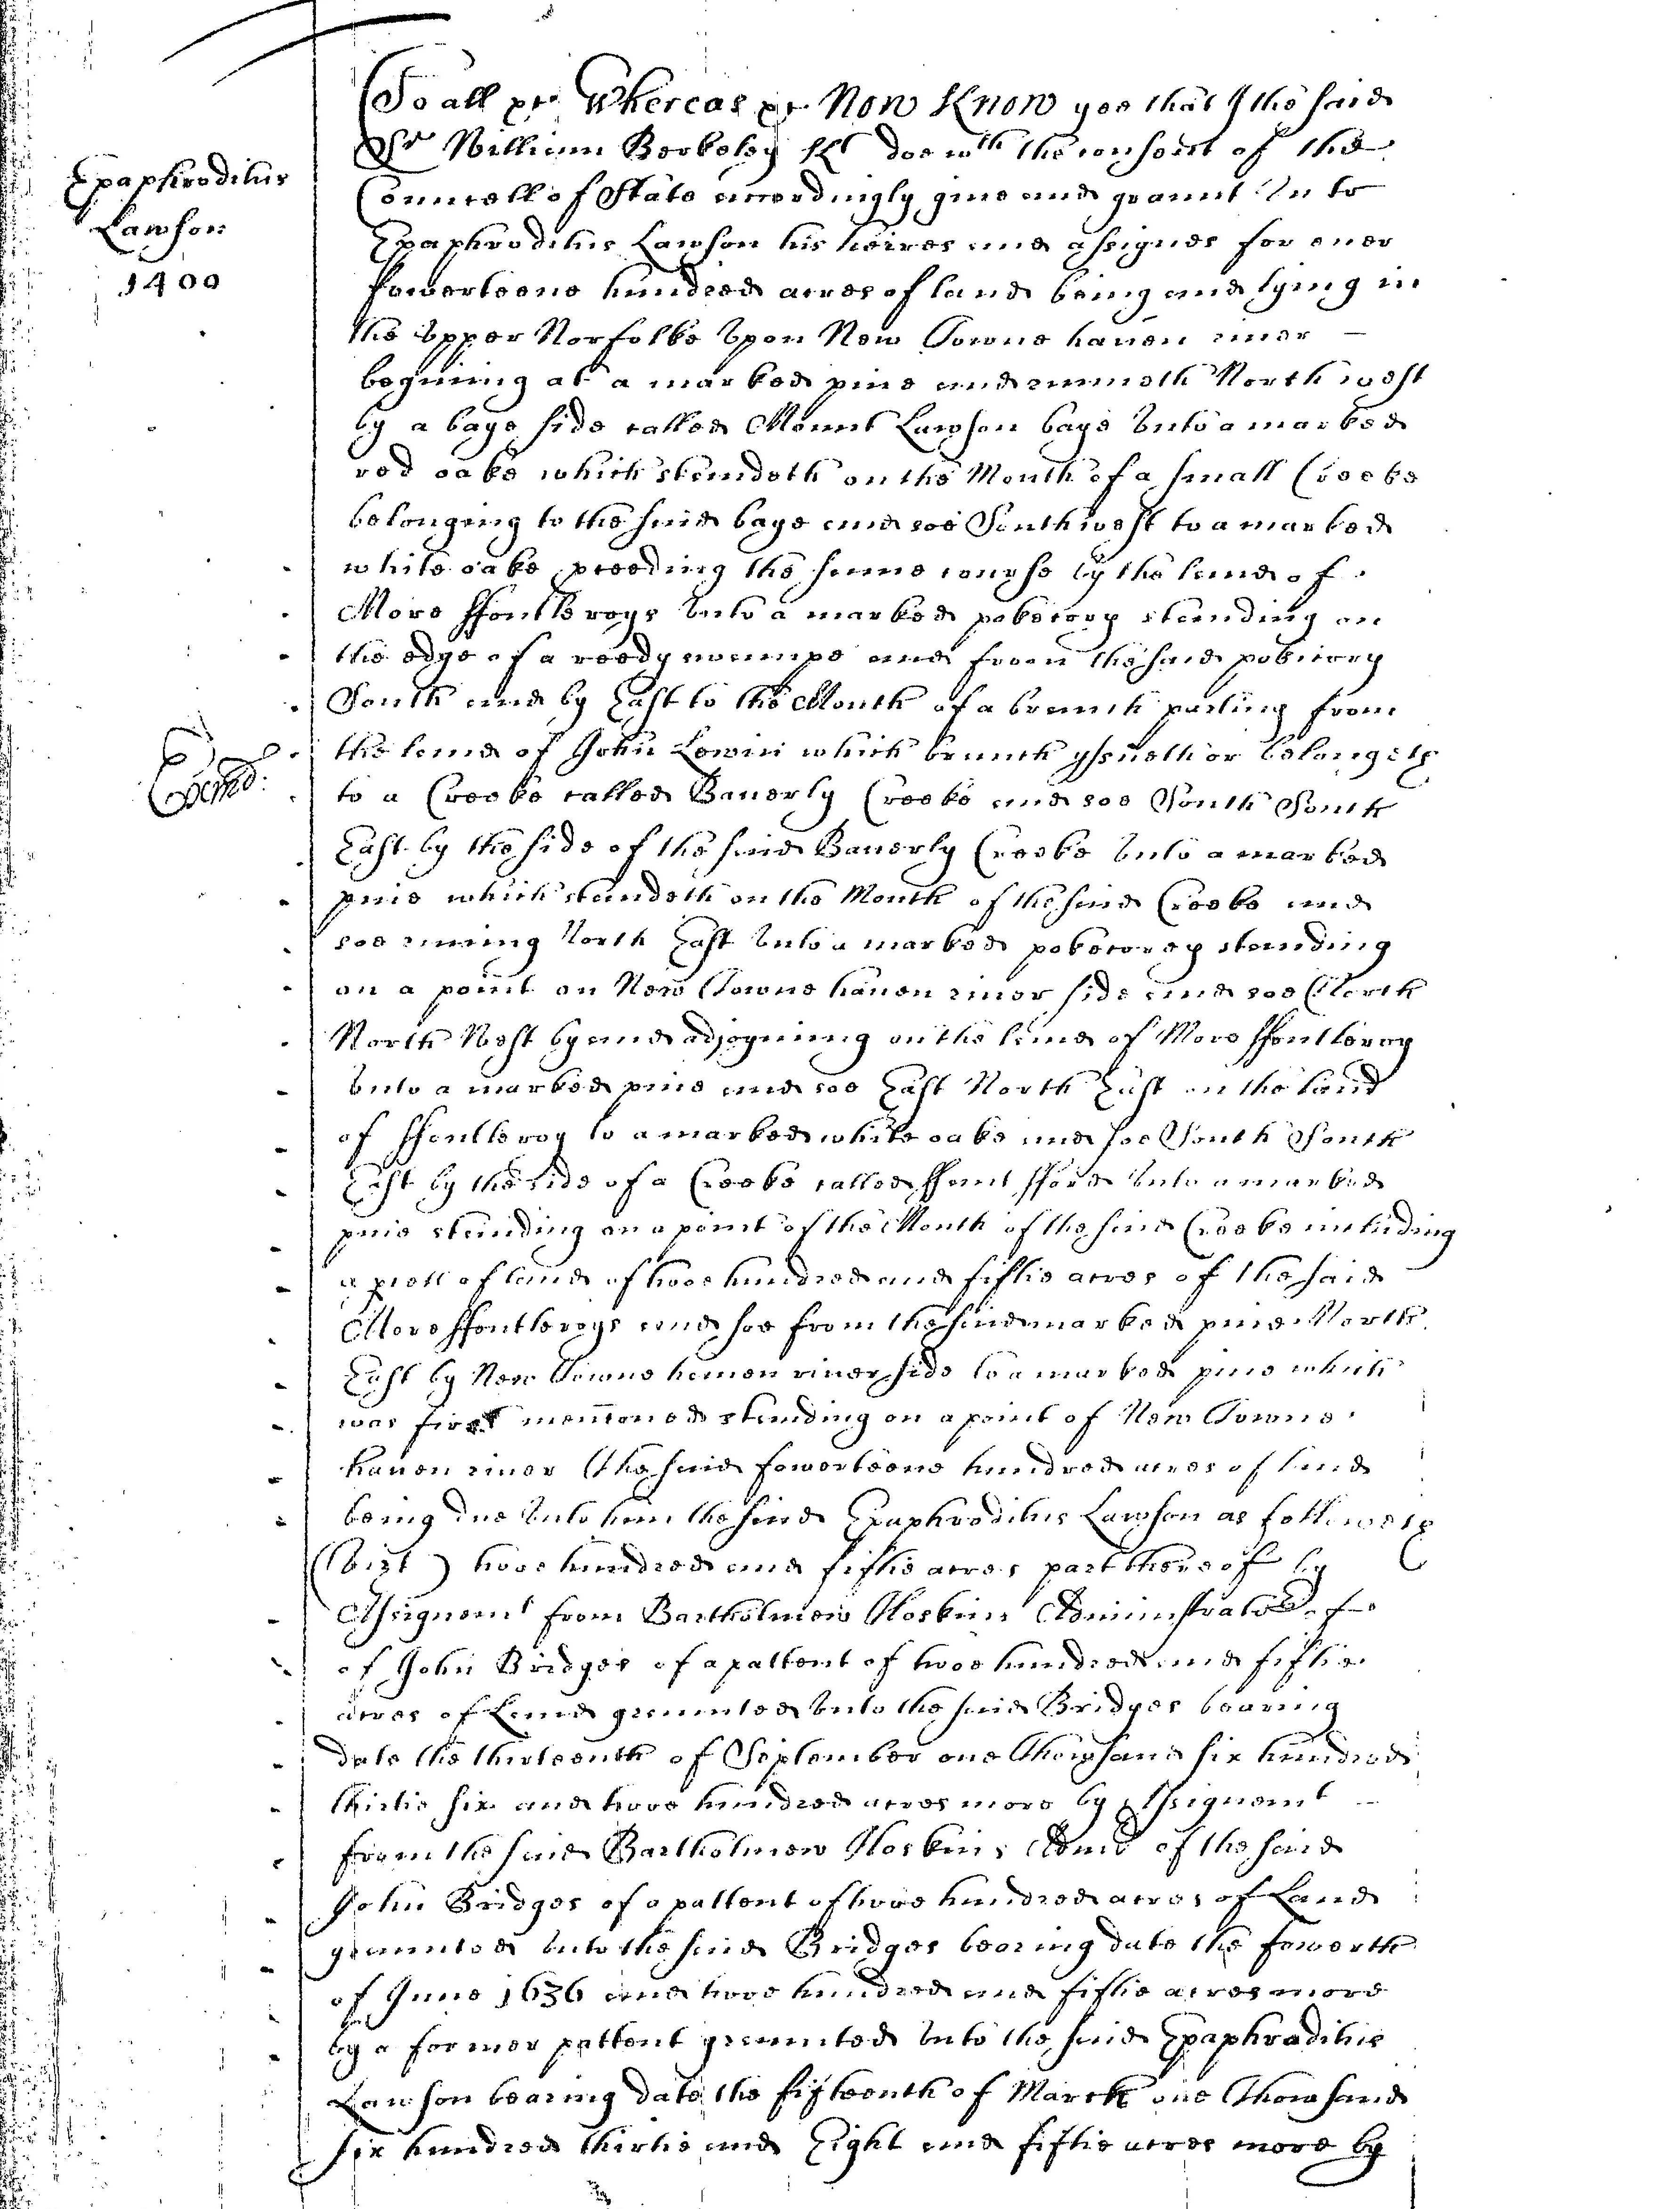 Epaphroditus
Lawson
1400
To all &c Whereas &c Now Know yee that I the said
Sr William Berkeley Kt doe wth the consent of the
Councell of State accordingly giue and graunt Vnto
Epaphroditus Lawson his heires and assignes for euer
fowerteene hundred acres of land being and lying in
the Vpper Norfolke Vpon New Towne hauen riuer
begining at a marked pine and runneth North west
by a baye side called Mount Lawson baye Vnto a marked
red oake which standeth on the Mouth of a small Creeke
belonging to the said baye and soe Southwest to a marked
white oake proceeding the same course by the land of
More ffontleroys Vnto a marked pokecory standing on
the edge of a reedy swampe and from the said pokicory
South and by East to the Mouth of a branch parting from
the land of John Lewin which branch yssueth or belongeth
to a Creeke called Bauerly Creeke and soe South South
East by the side of the said Bauerly Creeke Vnto a marked
pine which standeth on the Mouth of the said Creeke and
soe runing North East Vnto a marked pokecorey standing
on a point on New Towne hauen riuer side and soe North
North West by and adjoyning on the land of More ffontleroy
Vnto a marked pine and soe East North East on the land
of ffontleroy to a marked white oake and soe South South
East by the side of a Creeke called ffont fford Vnto a marked
pine standing on a point of the Mouth of the said Creeke including
a prcell of land of twoe hundred and fiftie acres of the said
More ffontleroys and soe from the said marked pine North
East by New Towne hauen riuer side to a marked pine which
was first menconed standing on a point of New Towne
hauen riuer (the said fowerteene hundred acres of land
being due Vnto him the said Epaphroditus Lawson as followeth
(Vizt) twoe hundred and fiftie acres part thereof by
Assignemt from Bartholmew Hoskins Administrator of
of John Bridges of a pattent of twoe hundred and fiftie
acres of Land graunted Vnto the said Bridges bearing
date the thirteenth of September one thowsand six hundred
thirtie six and twoe hundred acres more by Assignemt
from the said Bartholmew Hoskins Admr of the said
John Bridges of a pattent of twoe hundred acres of Land
graunted Vnto the said Bridges bearing date the fowerth
of June 1636 and twoe hundred and fiftie acres more
by a former pattent graunted Vnto the said Epaphraditus
Lawson bearing date the fifteenth of March one thowsand
six hundred thirtie and Eight and fiftie acres more by